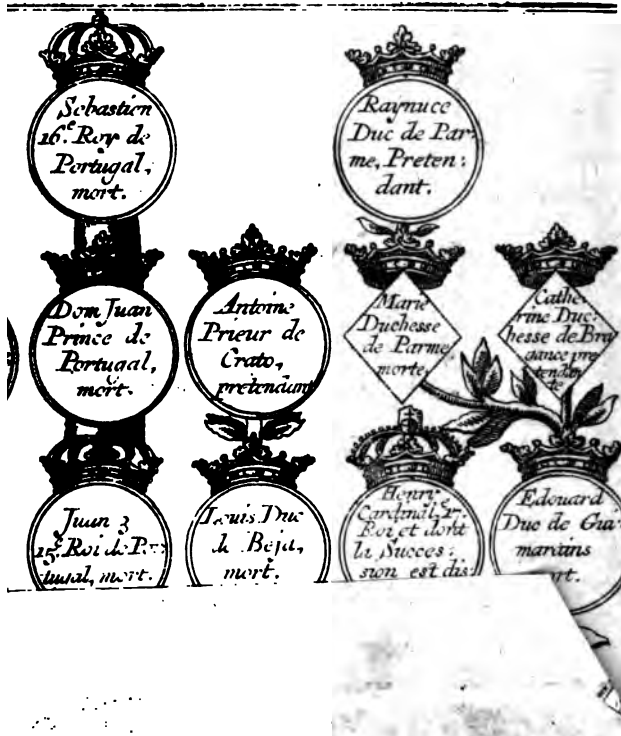 Sebastien
16.e Roy de
Portugal,
mort.
Raynuce
Duc de Par-
me, Preten:
dant.
Dom Juan
Prince de
Portugal,
mort.
Antoine
Prieur de
Crato,
pretendant
Marie
Duchesse
de Parme
morte,
Cathe
rine Duc:
hesse de Bra
gance pre
tendan
te
Juan 3
15.e Roi de Por
tugal, mort.
Louis Duc
de Beja,
mort.
Henry
Cardinal, 17.e
Roi et dont
la Succes:
sion est dis:
Edouard
Duc de Gui
marains